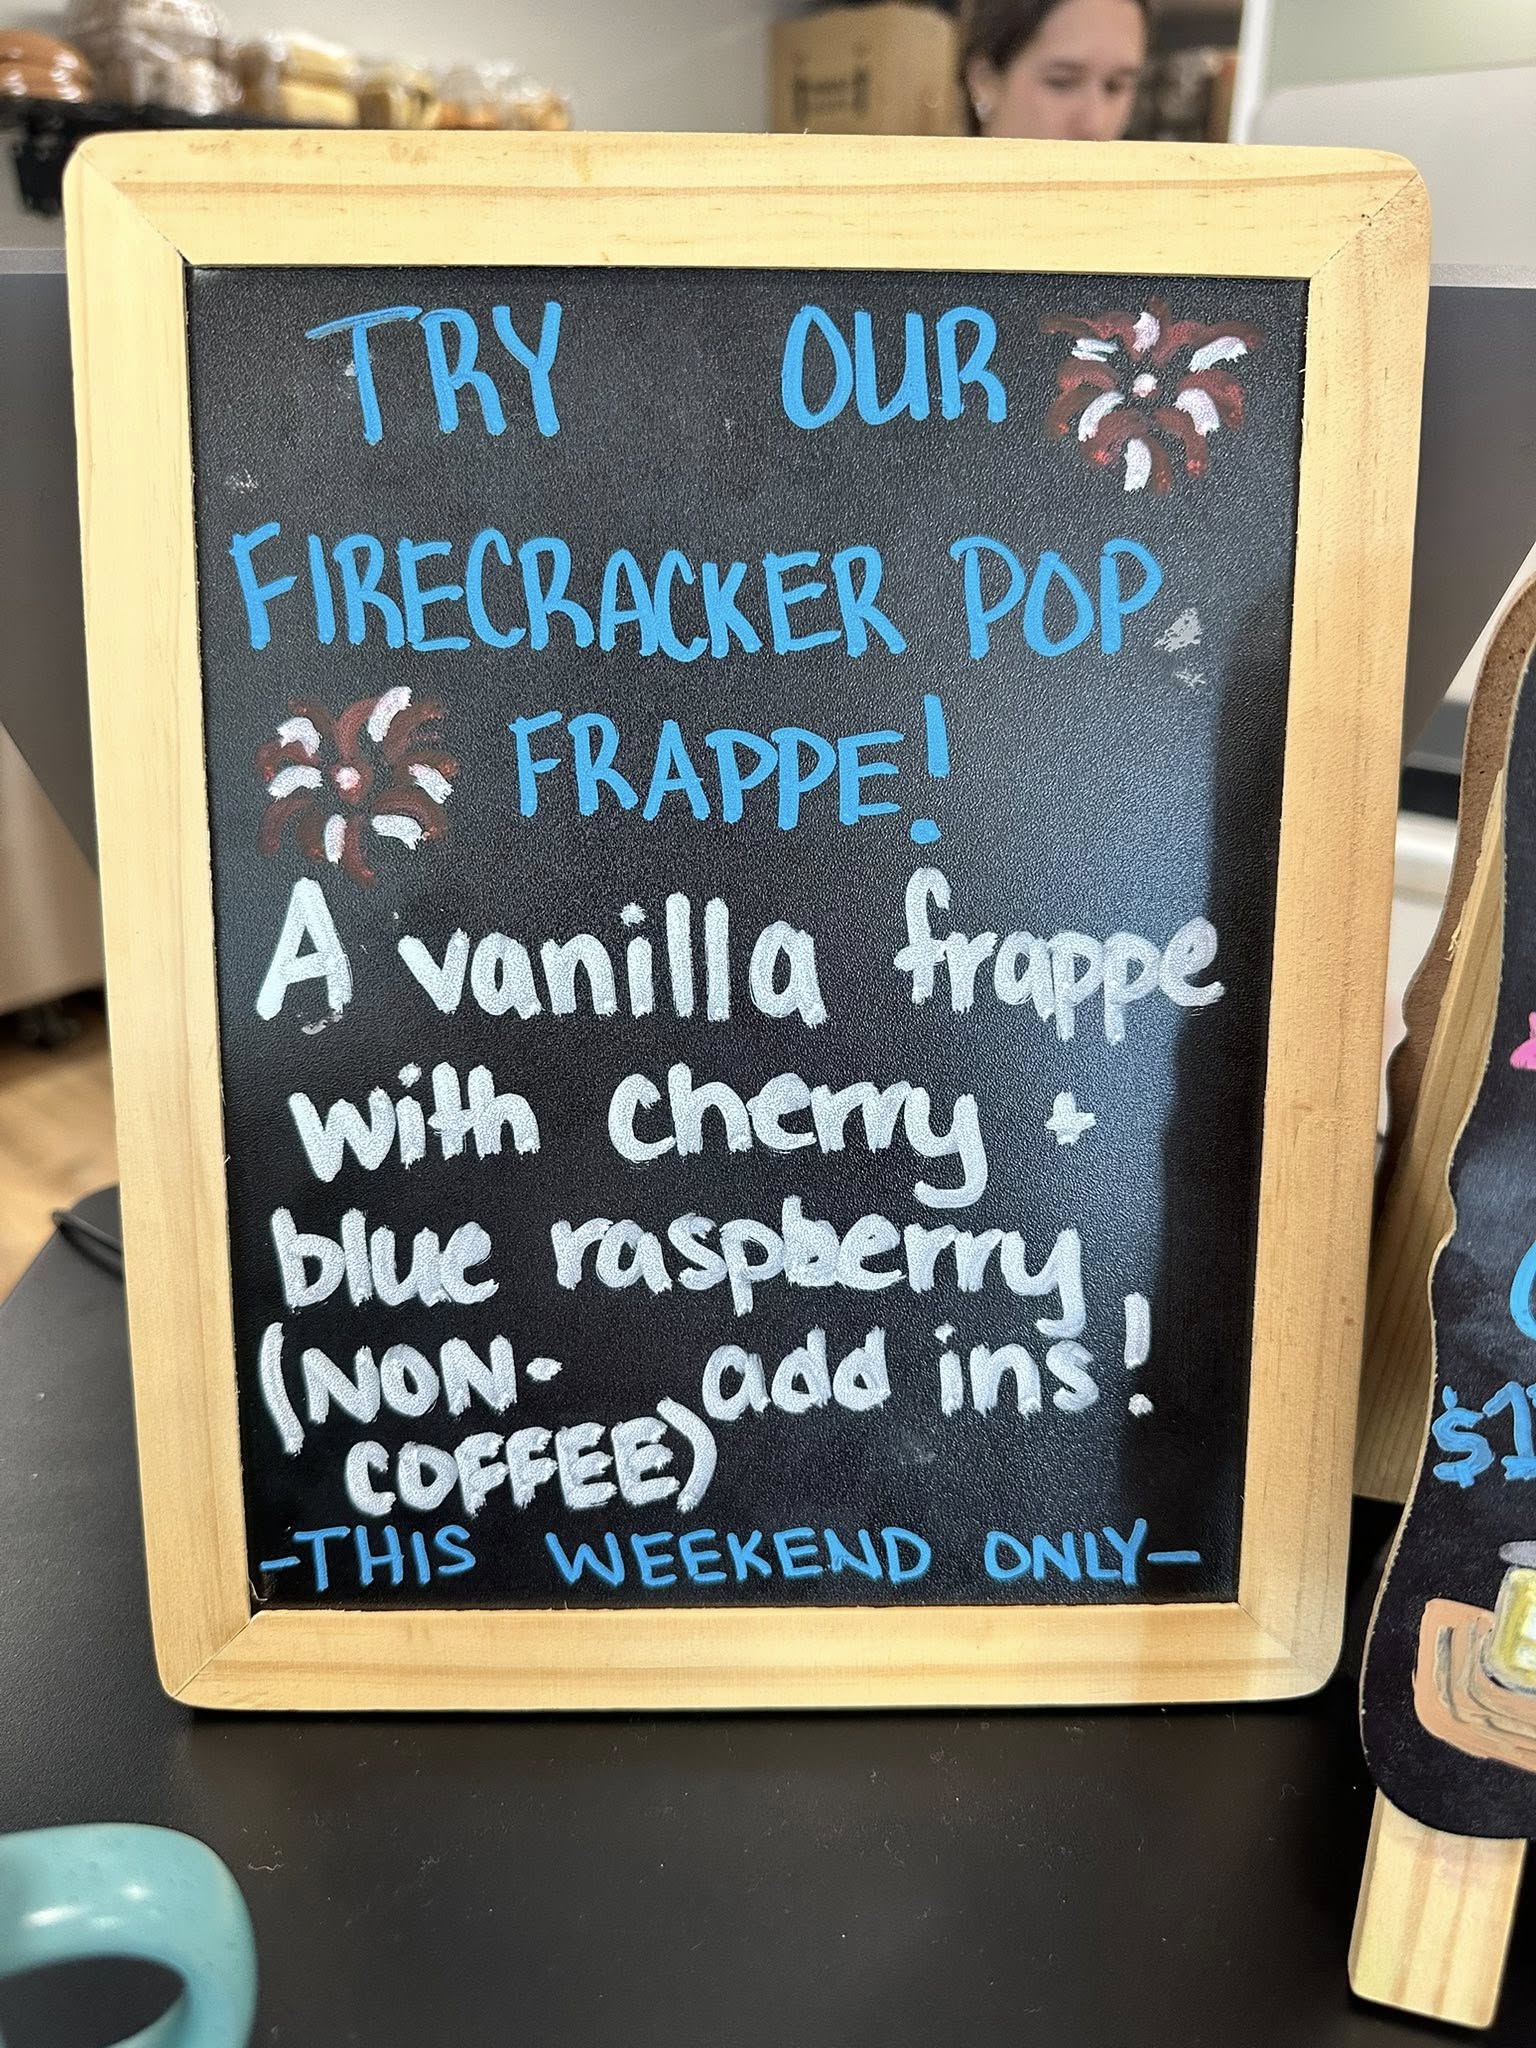 TRY OUR
FIRECRACKER POP
FRAPPE!
A vanilla frappe
with cherry +
blue raspberry
(NON- add ins!
COFFEE)
-THIS WEEKEND ONLY-